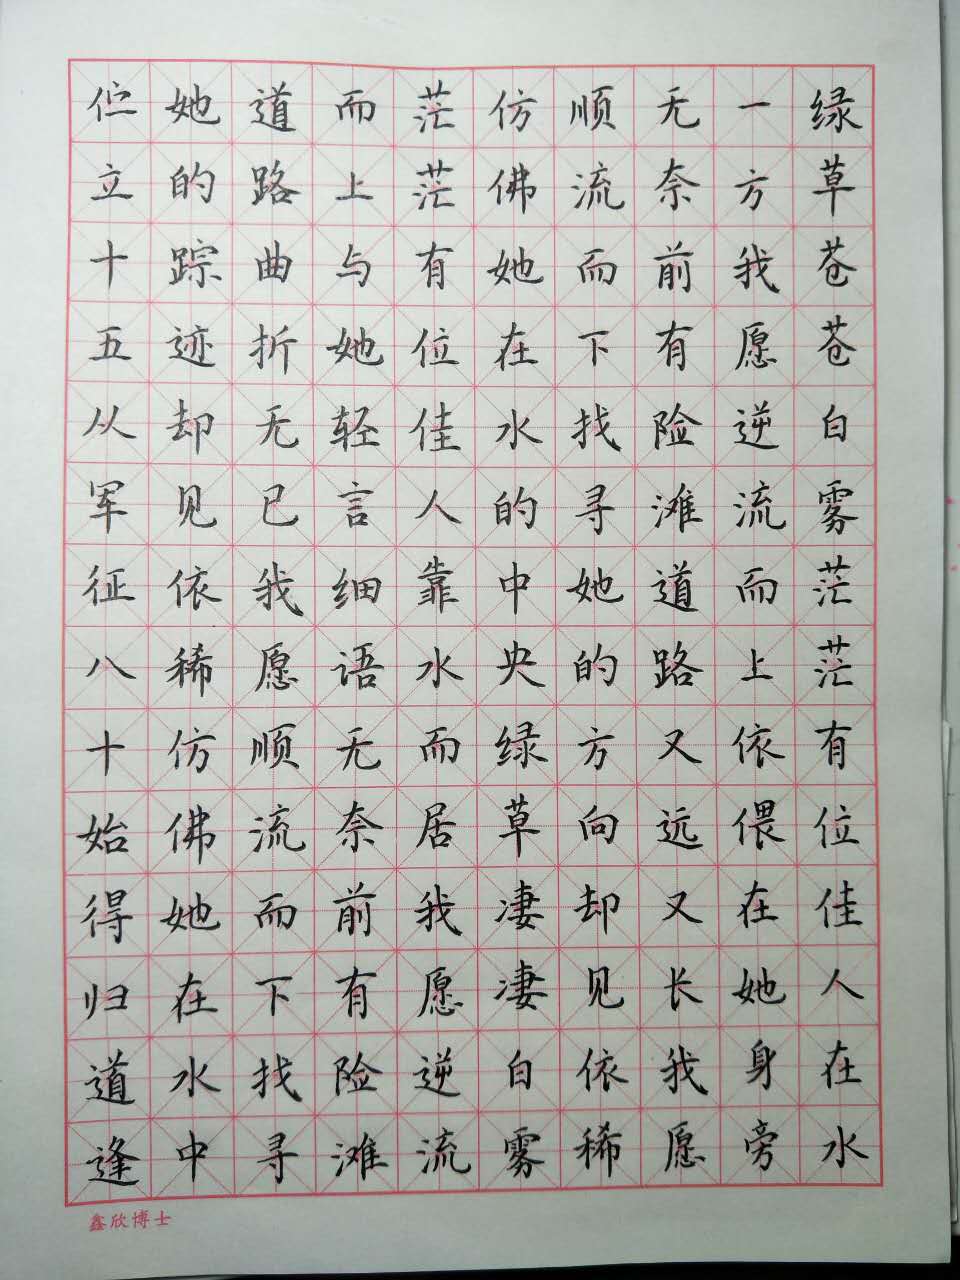 绿草苍苍白雾茫茫有位佳人在水
一方我愿逆流而上依偎在她身旁
无奈前有险滩道路又远又长我愿
顺流而下找寻她的方向却见依稀
仿佛她在水的中央绿草凄凄白雾
茫茫有位佳人靠水而居我愿逆流
而上与她轻言细语无奈前有险滩
道路曲折无已我愿顺流而下找寻
她的踪迹却见依稀仿佛她在水中
伫立十五从军征八十始得归道逢
鑫欣博士